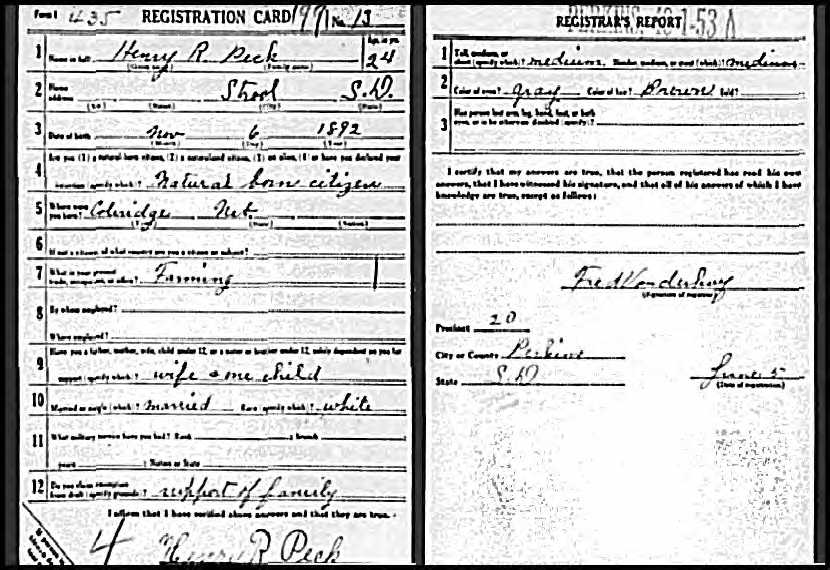 Form 1 435 REGISTRATION CARD No. 13
Age, in yrs.
1 Name in full Henry R. Peck 24
(Given name) (Family name)
2 Home address Strool S.D.
(No.) (Street) (City) (State)
3 Date of birth Nov 6 1892
(Month) (Day) (Year)
4 Are you (1) a natural-born citizen, (2) a naturalized citizen, (3) an alien, (4) or have you declared your
intention (specify which)? Natural born citizen
5 Where were you born? Coleridge Neb
(Town) (State) (Nation)
6 If not a citizen, of what country are you a citizen or subject?
7 What is your present trade, occupation, or office? Farming
8 By whom employed?
Where employed?
9 Have you a father, mother, wife, child under 12, or a sister or brother under 12, solely dependent on you for
support (specify which)? wife & one child
10 Married or single (which)? married Race (specify which)? white
11 What military service have you had? Rank ; branch
years ; Nation or State
12 Do you claim exemption from draft (specify grounds)? support of family
I affirm that I have verified above answers and that they are true.
4 Henry R Peck
REGISTRAR'S REPORT
1 Tall, medium, or short (specify which)? medium Slender, medium, or stout (which)? medium
2 Color of eyes? gray Color of hair? Brown Bald?
3 Has person lost arm, leg, hand, foot, or both
eyes, or is he otherwise disabled (specify)?
I certify that my answers are true, that the person registered has read his own
answers, that I have witnessed his signature, and that all of his answers of which I have
knowledge are true, except as follows:
(Signature of registrar)
Precinct 20
City or County Perkins
State S.D. June 5
(Date of registration)